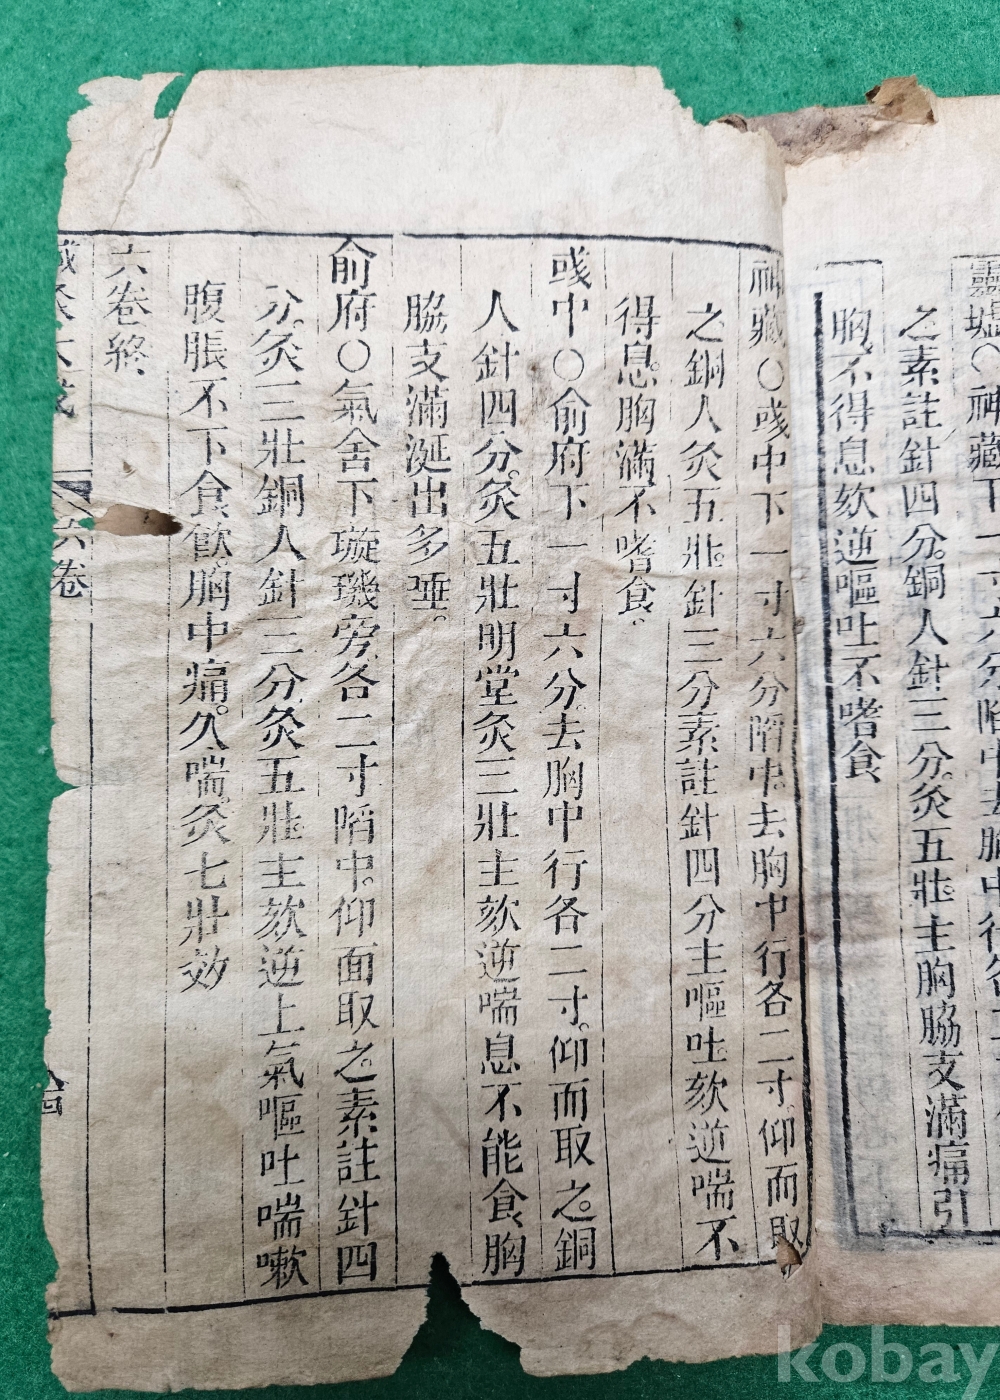 靈墟○神藏下一寸六分陷中去胸中行各二
之素註針四分。銅人針三分。灸五壯主胸脇支滿痛引
胸不得息欬逆嘔吐不嗜食
神藏○彧中下一寸六分陷中。去胸中行各二寸。仰而取
之銅人灸五壯。針三分素註針四分主嘔吐欬逆喘不
得息。胸滿不嗜食。
彧中○俞府下一寸六分。去胸中行各二寸。仰而取之。銅
人針四分。灸五壯明堂灸三壯主欬逆喘息不能食胸
脇支滿涎出多唾。
俞府○氣舍下璇璣旁各二寸陷中。仰面取之素註針四
分。灸三壯銅人針三分灸五壯主欬逆上氣嘔吐喘嗽
腹脹不下食飲。胸中痛。久喘。灸七壯效
六卷終
六卷